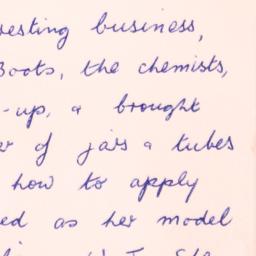 vesting business,
Boots, the chemists,
-up, & brought
er of jars & tubes
how to apply
ed as her model